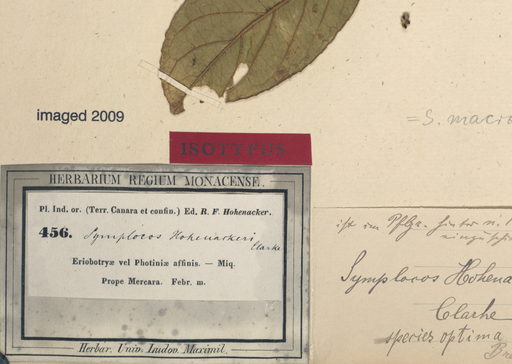 imaged 2009
= S. macro
ISOTYPUS
HERBARIUM REGIUM MONACENSE.
Pl. Ind. or. (Terr. Canara et confin.) Ed. R. F. Hohenacker.
456. Symplocos Hohenackeri
Clarke
Eriobotryæ vel Photiniæ affinis. — Miq.
Prope Mercara. Febr. m.
Herbar. Univ. Ludov. Maximil.
ist im
Symplocos Hohena
Clarke
species optima